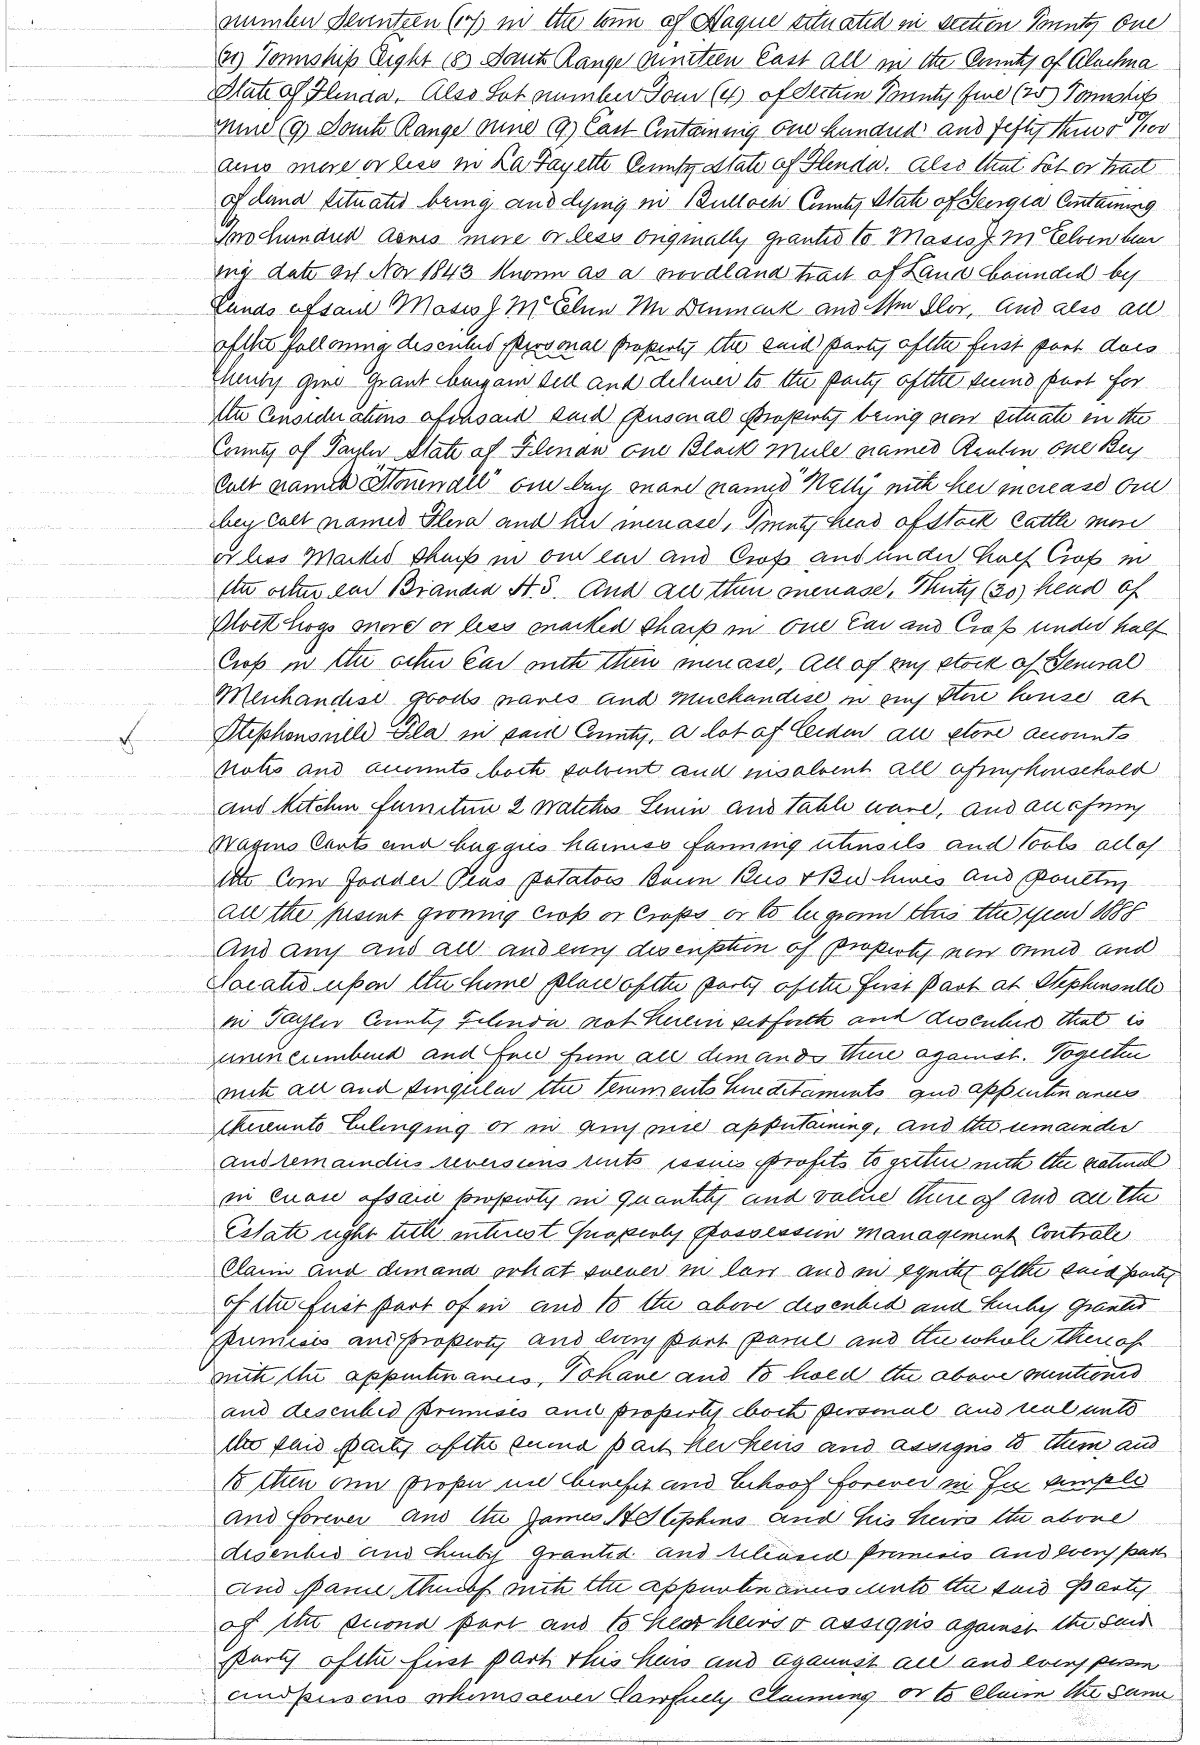 number Seventeen (17) in the town of Hague situated in section Twenty One
(21) Township Eight (8) South Range nineteen East all in the County of Alachua
State of Florida. Also Lot number Four (4) of Section Twenty five (25) Township
nine (9) South Range nine (9) East Containing one hundred and fifty three & /100
acres more or less in La Fayette County State of Florida. Also that Lot or tract
of land situated being and lying in Bulloch County State of Georgia Containing
Two hundred acres more or less originally granted to Moses J. McElven bear
ing date 24 Nov 1843 Known as a woodland tract of Land bounded by
Lands of said Moses J McElven Mr Denmark and Wm Ilor, and also all
of the following described personal property the said party of the first part does
hereby give grant bargain sell and deliver to the party of the second part for
the Considerations aforesaid said personal property being now situate in the
County of Taylor State of Florida one Black mule named Reuben one Bey
Colt named "Stonewall" one bay mare named "Nelly" with her increase One
bey Colt named Flora and her increase, Twenty head of stock Cattle more
or less Marked sharp in one ear and Crop and under half Crop in
the other ear Branded H.S. And all their increase, Thirty (30) head of
Stock hogs more or less marked sharp in one Ear and Crop under half
Crop in the other Ear with their increase, All of my stock of General
Merchandise goods wares and merchandise in my store house at
Stephensville Fla in said County, a lot of Cedar all store accounts
notes and accounts both solvent and insolvent all of my household
and kitchen furniture 2 Watches Linin and table ware, and all of my
Wagons Carts and buggies harness farming utensils and tools all of
the Corn fodder Peas potatoes Bacon Bees & Bee hives and poultry
all the present growing crop or crops or to be grown this the year 1888
And any and all and every description of property now owned and
located upon the home place of the party of the first part at Stephensville
in Taylor County Florida not herein set forth and described that is
unencumbered and free from all demands there against. Together
with all and singular the tenements hereditaments and appurtenances
thereunto belonging or in any wise appertaining, and the remainder
and remainders reversions rents issues profits together with the natural
in crease of said property in quantity and value there of and all the
Estate right title interest property possession management Controle
Claim and demand what soever in law and in equity of the said party
of the first part of in and to the above described and hereby granted
premises and property and every part parcel and the whole there of
with the appurtenances, To have and to hold the above mentioned
and described premises and property both personal and real unto
the said party of the second part her heirs and assigns to them and
to their own proper use benefit and behoof forever in fee simple
and forever and the James H Stephens and his heirs the above
described and hereby granted and released premises and every part
and parcel thereof with the appurtenances unto the said party
of the second part and to her heirs & assigns against the said
party of the first part & his heirs and against all and every person
and persons whomsoever lawfully claiming or to claim the same